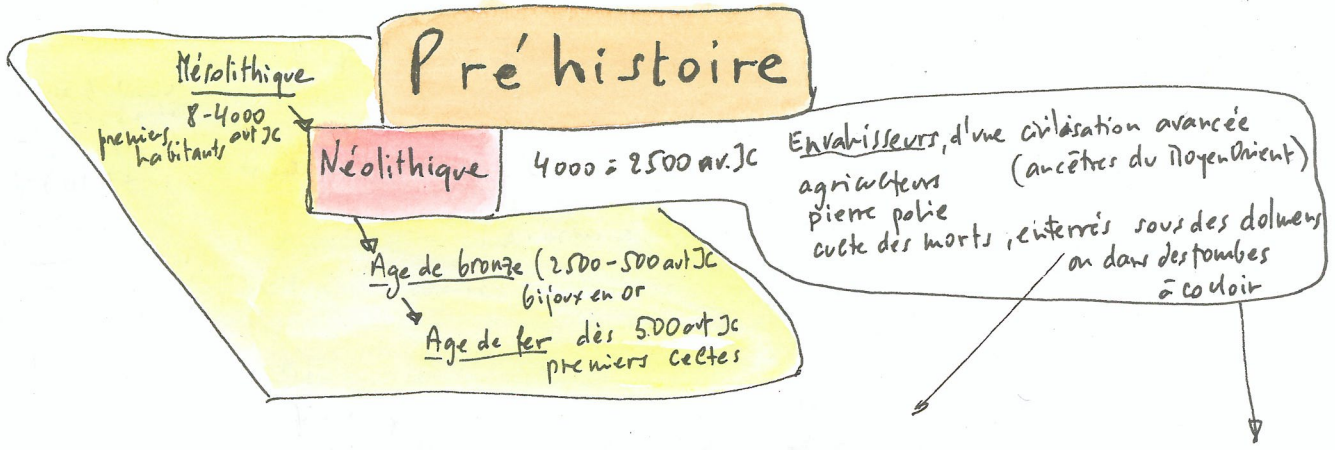 Préhistoire
Mésolithique
8-4000
premiers avt JC
habitants
Néolithique
4000 à 2500 av. JC
Envahisseurs, d'une civilisation avancée
(ancêtres du Moyen Orient)
agriculteurs
pierre polie
culte des morts, enterrés sous des dolmens
ou dans des tombes
à couloir
Age de bronze (2500-500 avt JC
bijoux en or
Age de fer dès 500 avt JC
premiers celtes